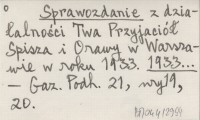 Sprawozdanie z dzia-
łalności Twa Przyjaciół
Spisza i Orawy w Warsza-
wie w roku 1933. 1933...
— Gaz. Podh. 21, nry 19,
20.